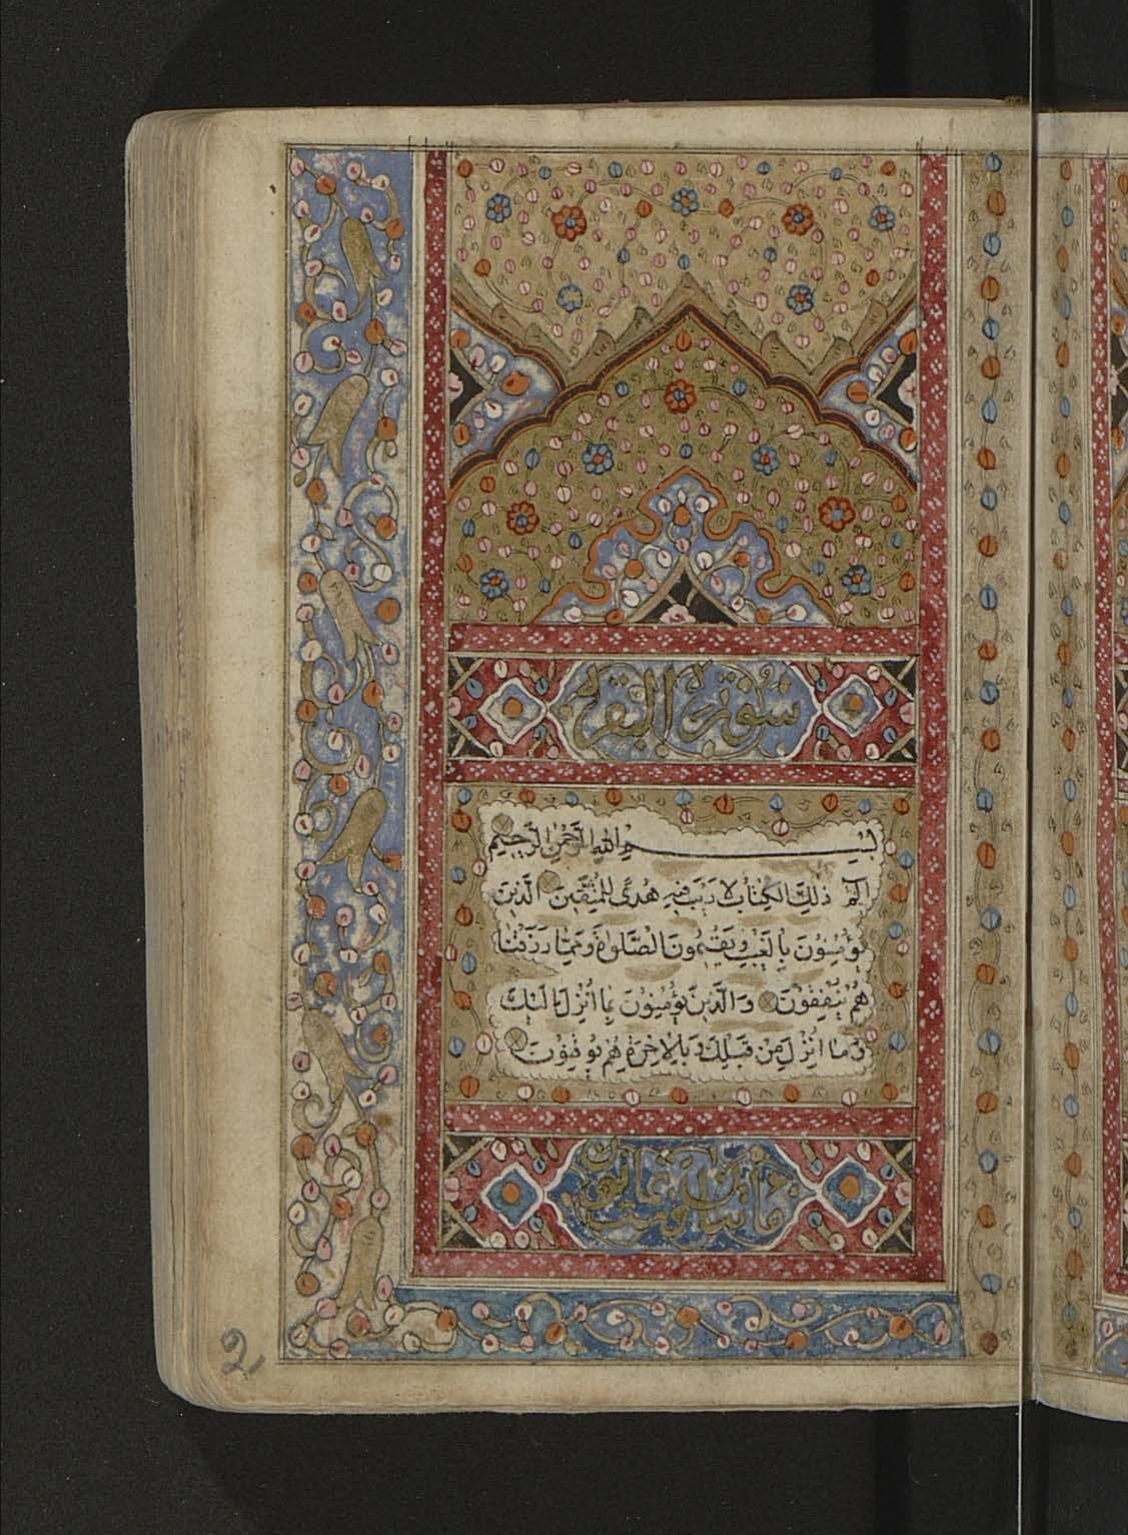 سورة البقرة
بسم الله الرحمن الرحيم
الم ذلك الكتاب لا ريب فيه هدى للمتقين الذين
يؤمنون بالغيب ويقيمون الصلوة ومما رزقنا
هم ينفقون والذين يؤمنون بما انزل اليك
وما انزل من قبلك وبالاخرة هم يوقنون
مائتان وست وثمانون
2